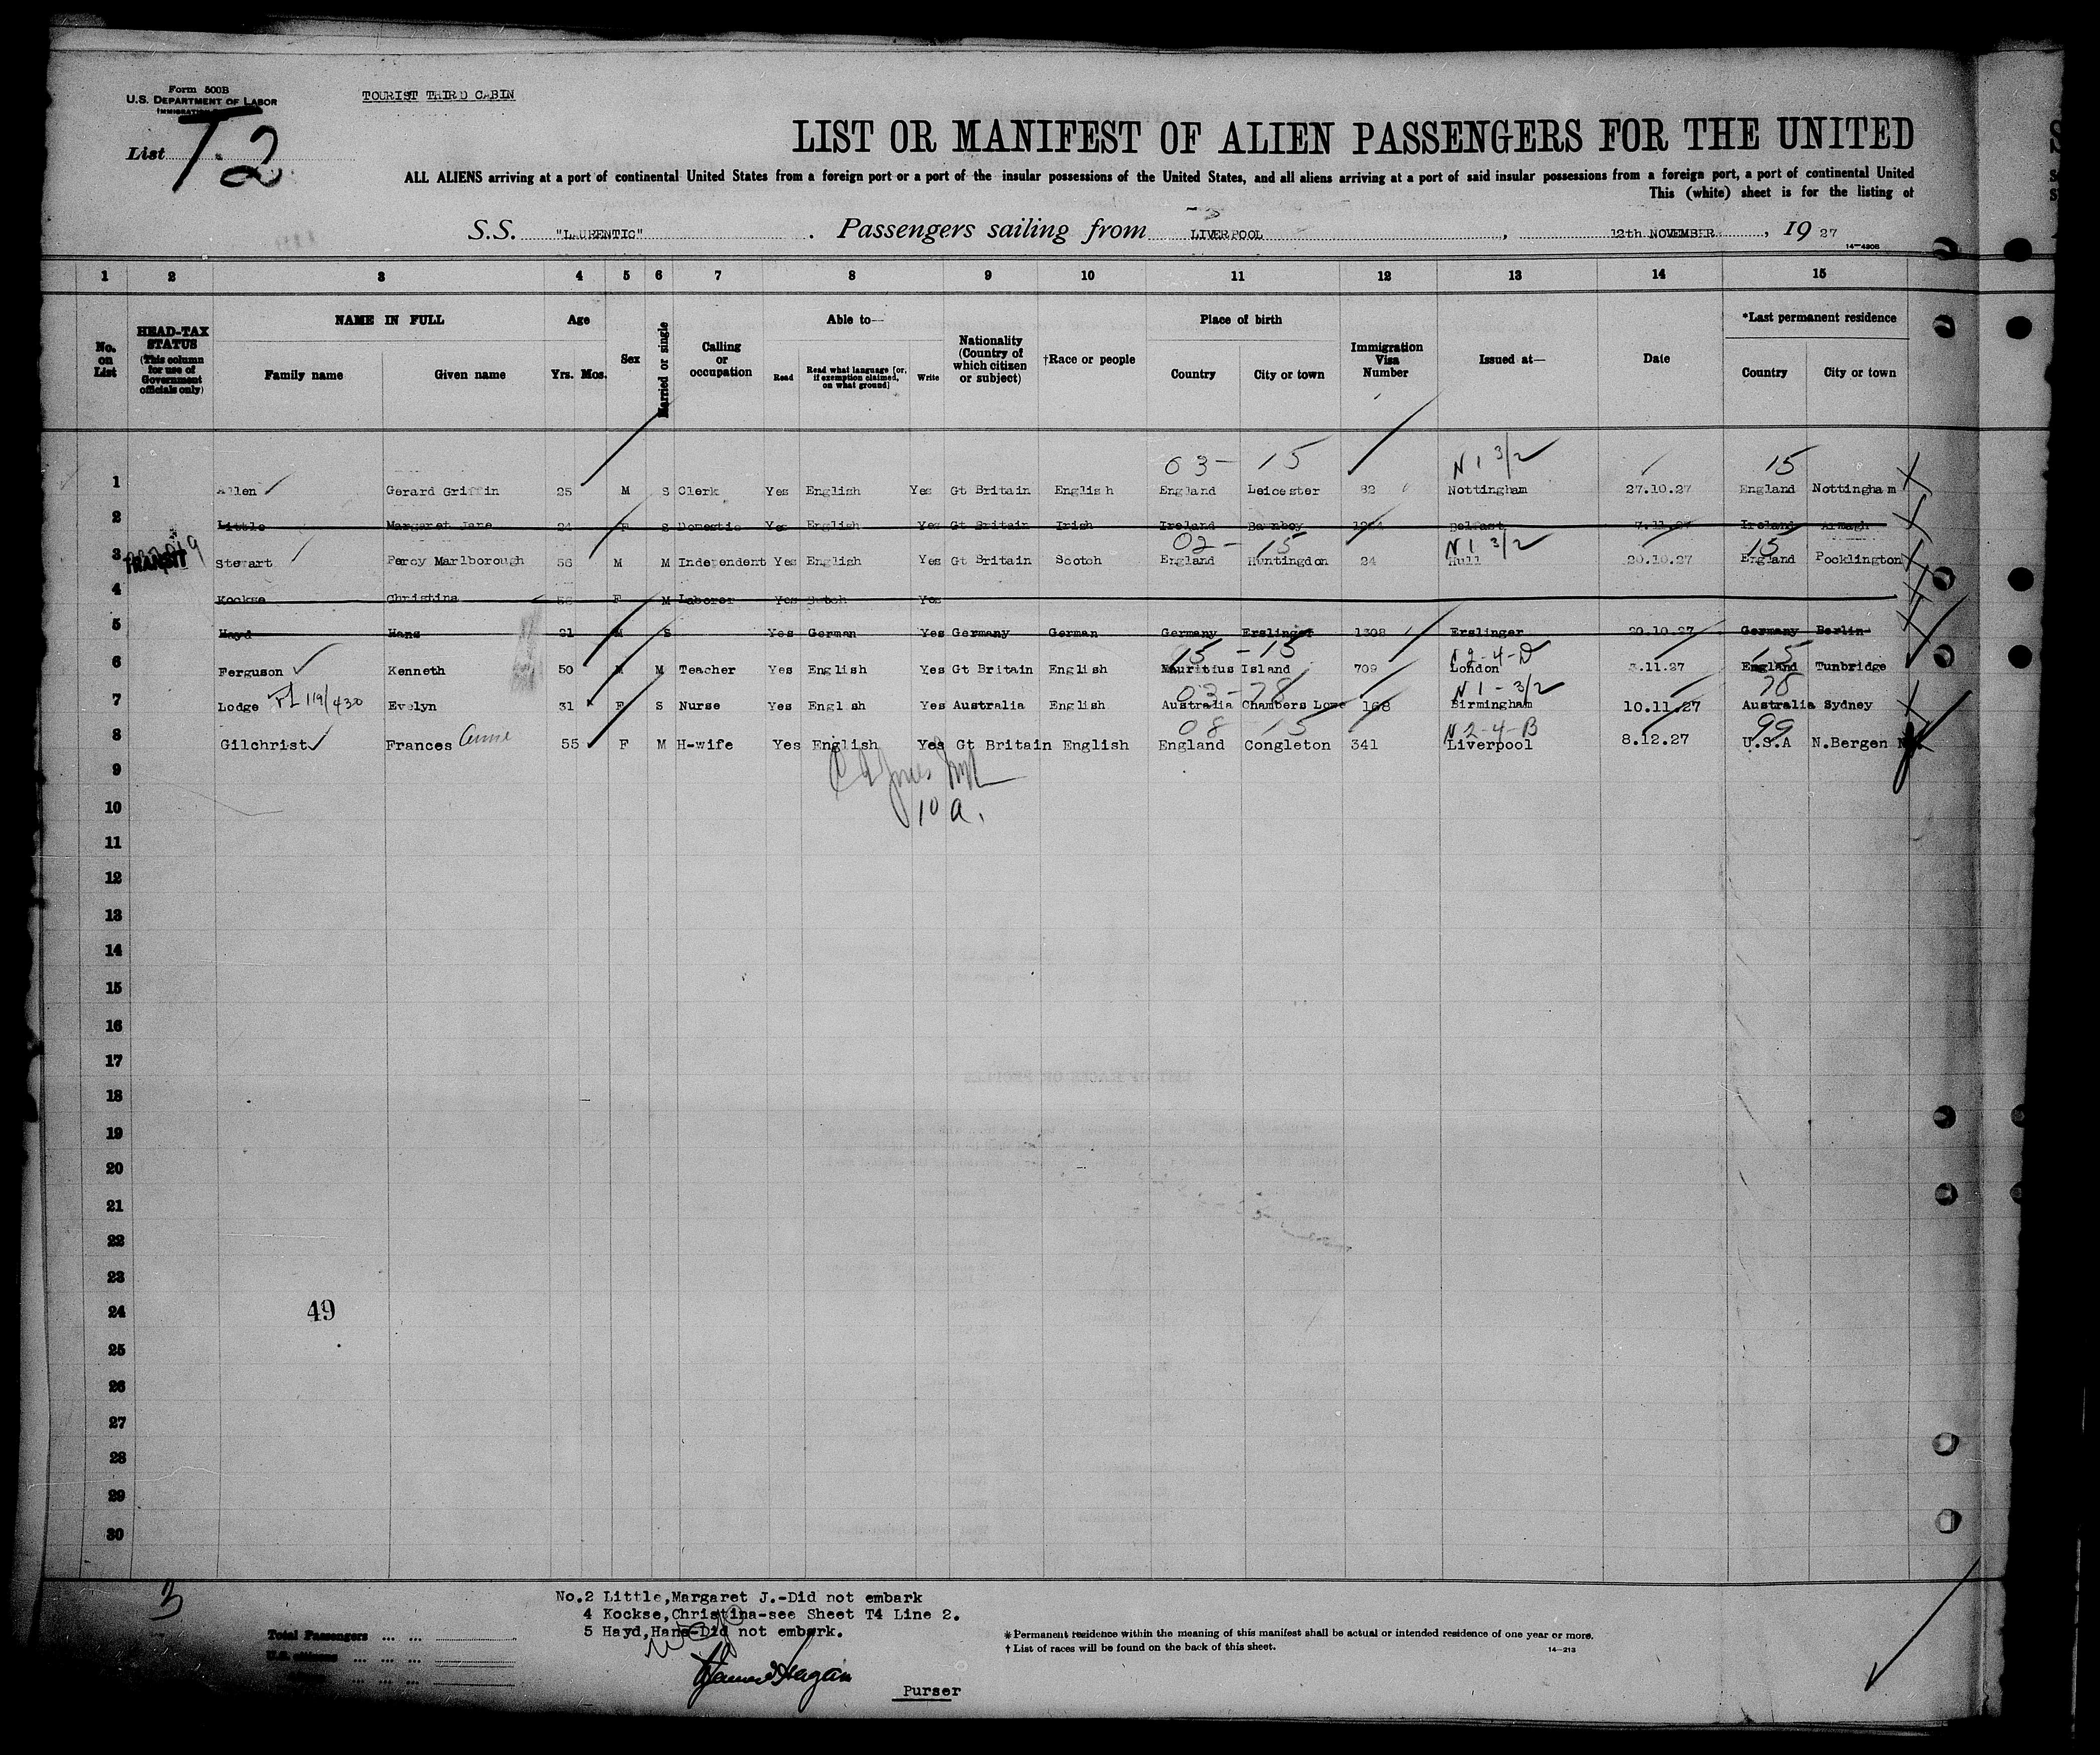 Form 500B
U.S. DEPARTMENT OF LABOR
TOURIST THIRD CABIN
List T-2
LIST OR MANIFEST OF ALIEN PASSENGERS FOR THE UNITED
ALL ALIENS arriving at a port of continental United States from a foreign port or a port of the insular possessions of the United States, and all aliens arriving at a port of said insular possessions from a foreign port, a port of continental United
This (white) sheet is for the listing of
S.S. "LAURENTIC" Passengers sailing from LIVERPOOL, 12th NOVEMBER, 19 27
14-4308
1 2 3 4 5 6 7 8 9 10 11 12 13 14 15
No. on List
HEAD-TAX STATUS (This column for use of Government officials only)
NAME IN FULL
Family name Given name
Age
Yrs. Mos.
Sex
Married or single
Calling or occupation
Able to—
Read Read what language [or, if exemption claimed, on what ground] Write
Nationality (Country of which citizen or subject)
†Race or people
Place of birth
Country City or town
Immigration Visa Number
Issued at—
Date
*Last permanent residence
Country City or town
03- 15 N 1 3/2 15
1 Allen Gerard Griffin 25 M S Clerk Yes English Yes Gt Britain English England Leicester 82 Nottingham 27.10.27 England Nottingham
2 Little Margaret Jane 24 F S Domestic Yes English Yes Gt Britain Irish Ireland Belfast 7.11.27 Ireland Armagh
02- 15 N 1 3/2 15
3 TRANSIT Stewart Percy Marlborough 56 M M Independent Yes English Yes Gt Britain Scotch England Huntingdon 24 Hull 20.10.27 England Pocklington
4 Kockse Christina F M Laborer Yes Yes
5 Hayd Hans 21 M S Yes German Yes Germany German Germany Erslinger 1308 Erslinger 20.10.27 Germany Berlin
15 -15 N 2-4-D 15
6 Ferguson Kenneth 50 M M Teacher Yes English Yes Gt Britain English Mauritius Island 709 London .11.27 England Tunbridge
03-78 N 1-3/2 78
7 Lodge 119/430 Evelyn 31 F S Nurse Yes English Yes Australia English Australia Chambers Lowe 168 Birmingham 10.11.27 Australia Sydney
08 15 N 2-4-B 99
8 Gilchrist Frances Anne 55 F M H-wife Yes English Yes Gt Britain English England Congleton 341 Liverpool 8.12.27 U.S.A N.Bergen
9
10 10 a.
11
12
13
14
15
16
17
18
19
20
21
22
23
24 49
25
26
27
28
29
30
3
No.2 Little,Margaret J.-Did not embark
4 Kockse,Christina-see Sheet T4 Line 2.
5 Hayd,Hans-Did not embark.
Total Passengers
U.S. citizens
* Permanent residence within the meaning of this manifest shall be actual or intended residence of one year or more.
† List of races will be found on the back of this sheet. 14-213
Purser